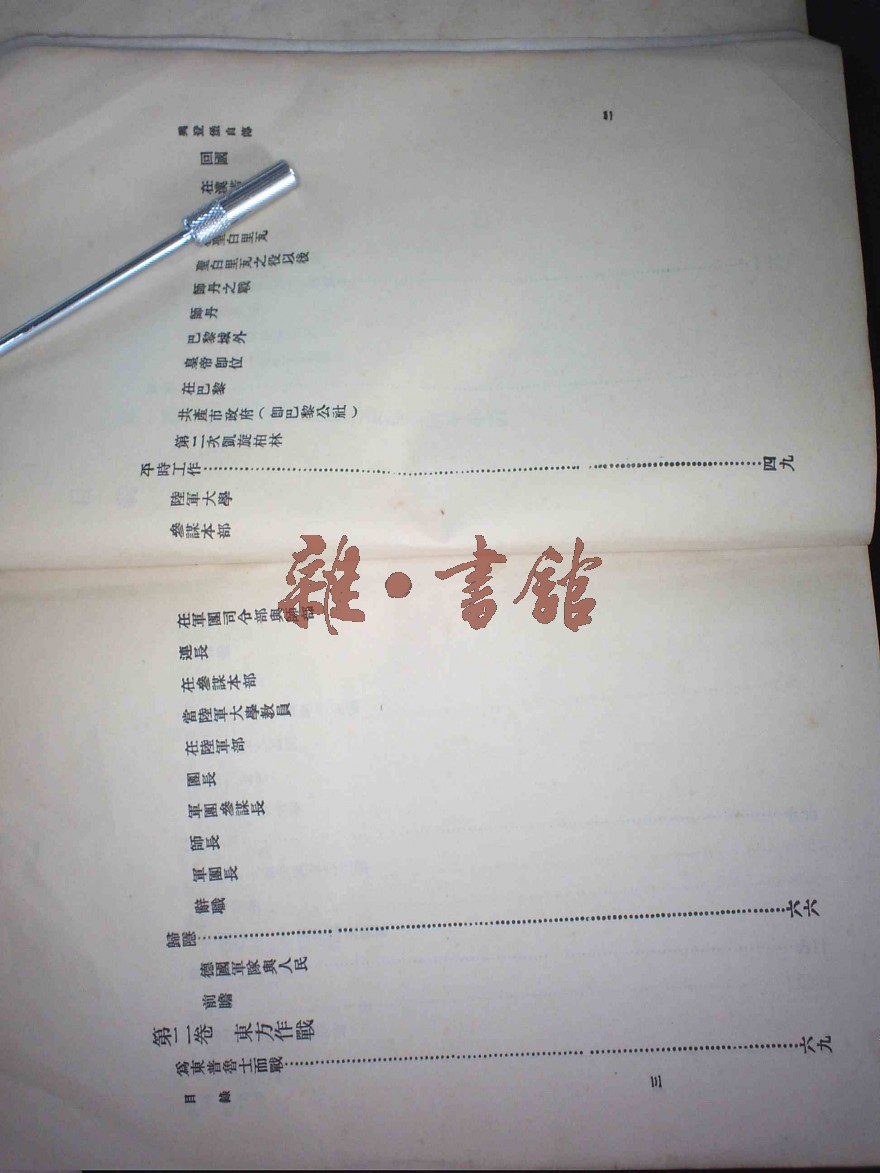 興登堡自傳
二
回國
在漢
聖白里瓦
聖白里瓦之役以後
師丹之戰
師丹
巴黎城外
皇帝卽位
在巴黎
共產市政府(卽巴黎公社)
第二次凱旋柏林
平時工作……四九
陸軍大學
參謀本部
雜·書館
在軍團司令部與師部
連長
在參謀本部
當陸軍大學教員
在陸軍部
團長
軍團參謀長
師長
軍團長
辭職
歸隱……六六
德國軍隊與人民
前瞻
第二卷 東方作戰
爲東普魯士而戰……六九
目錄
三